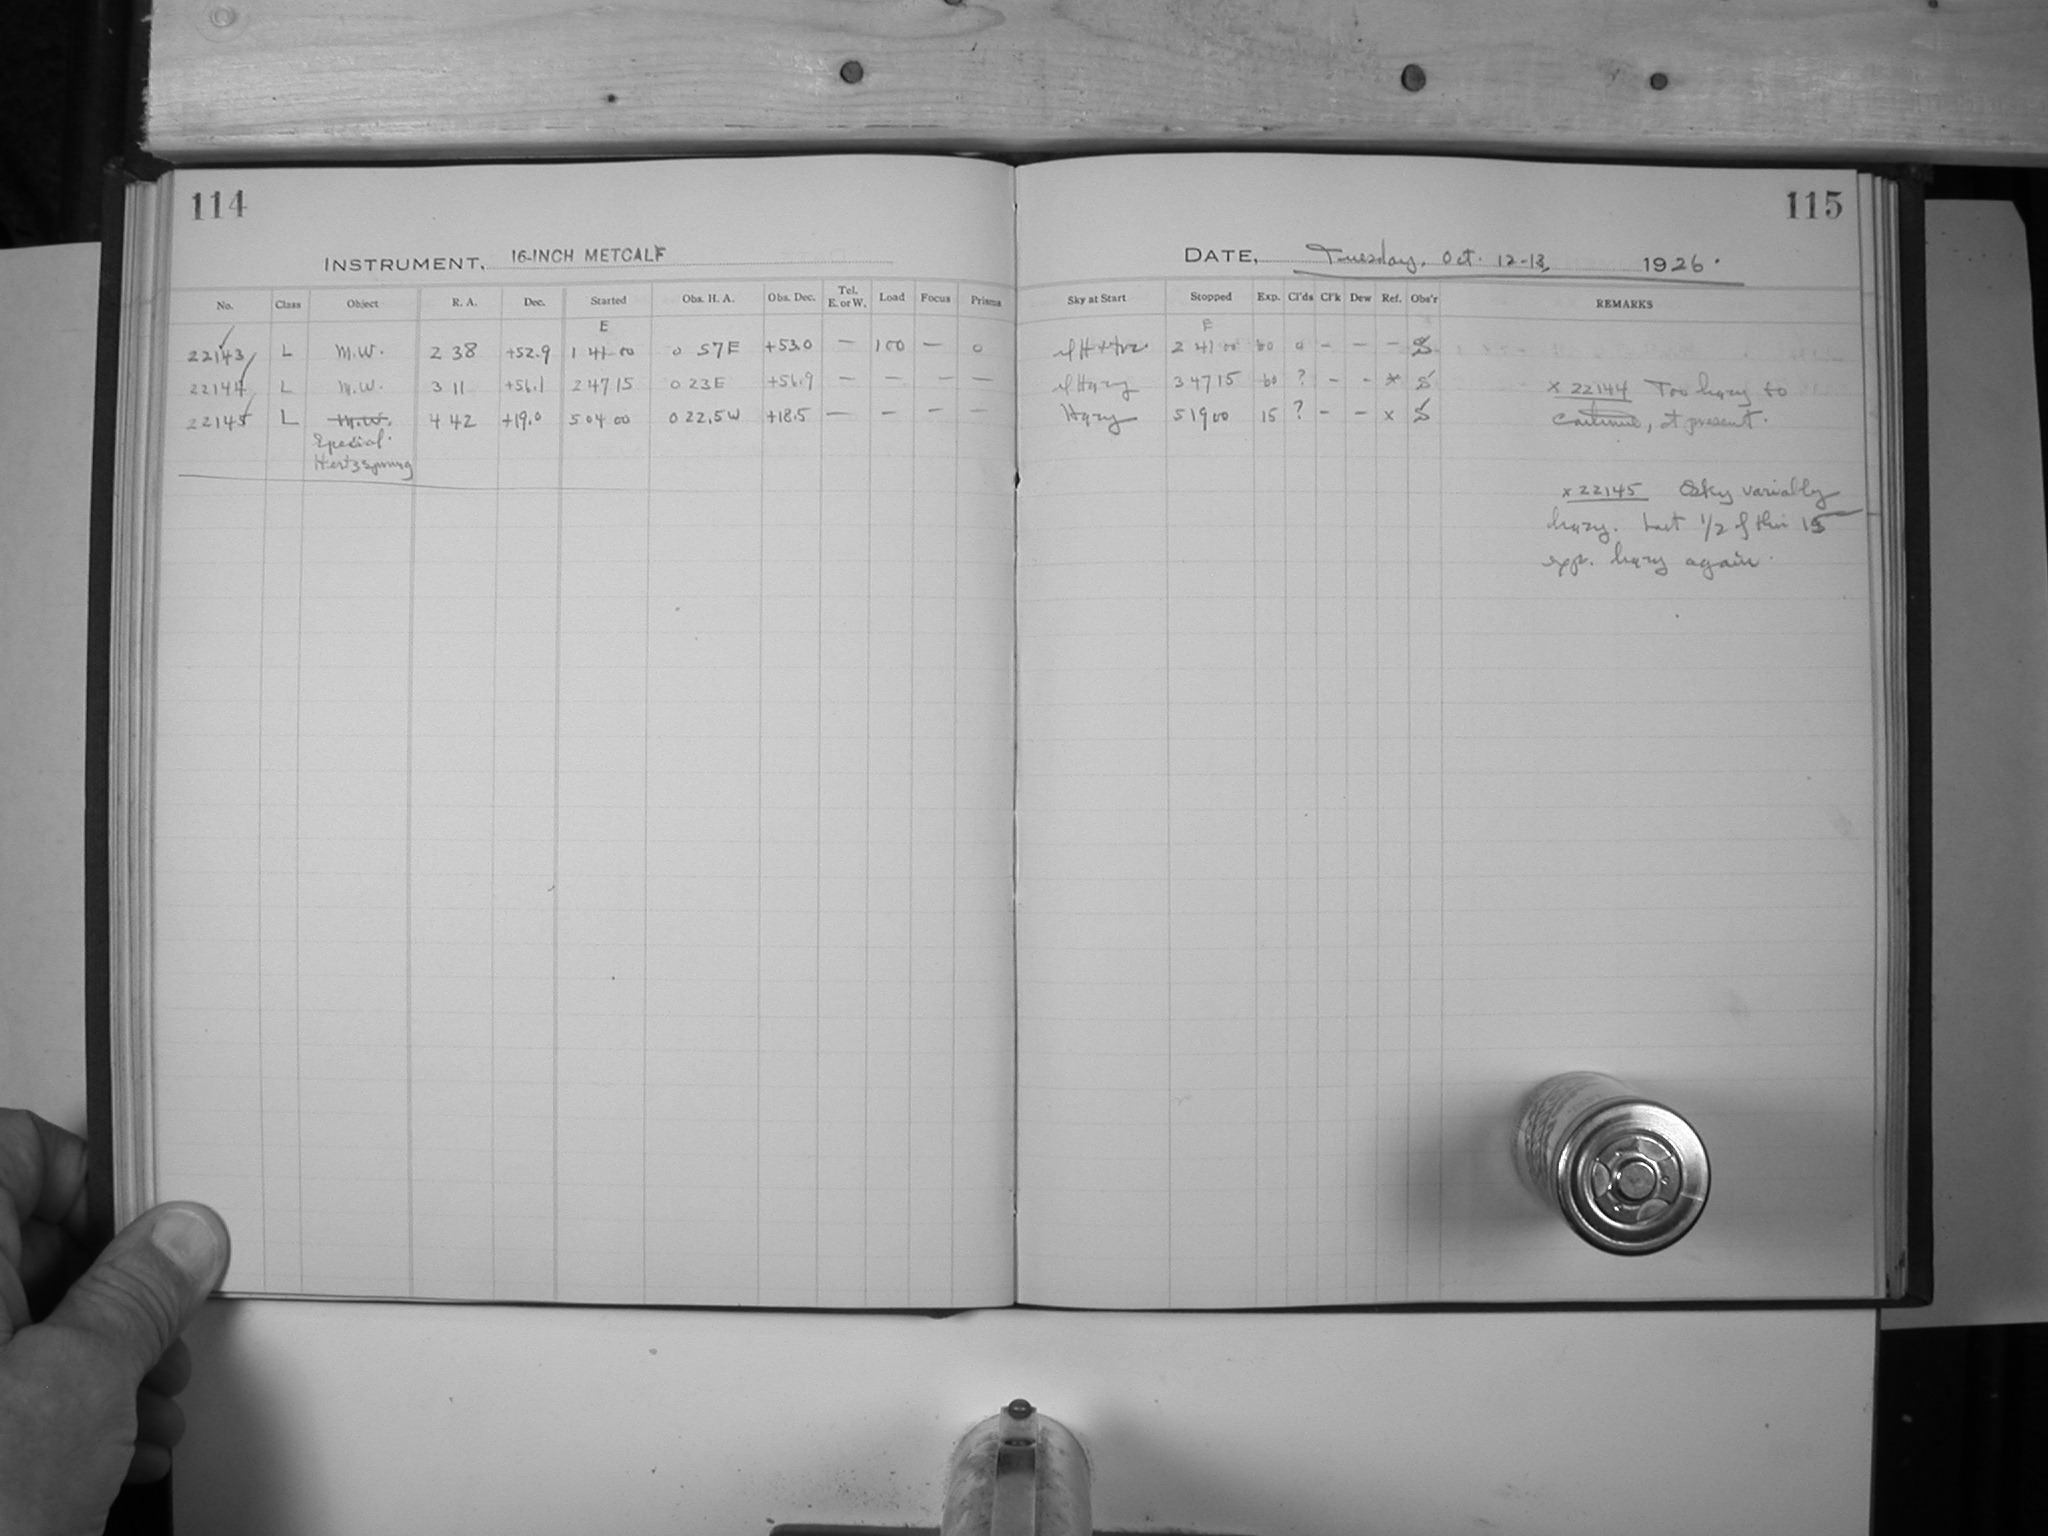 114
INSTRUMENT, 16-INCH METCALF
No. Class Object R. A. Dec. Started Obs. H. A. Obs. Dec. Tel. E. or W. Load Focus Prisms
E
22143 L M.W. 2 38 +52.9 1 41 00 0 57E +53.0 — 100 — 0
22144 L M.W. 3 11 +56.1 2 47 15 0 23E +56.9 — — — —
22145 L M.W. 4 42 +19.0 5 04 00 0 22.5W +18.5 — — — —
Special
Hertzsprung
115
DATE, Tuesday, Oct. 12-13, 1926.
Sky at Start Stopped Exp. Cl'ds Cl'k Dew Ref. Obs'r REMARKS
2 41 00 60 0 – – – S
Hazy 3 47 15 60 ? – – x S
Hazy 5 19 00 15 ? – – x S
x 22144 Too hazy to
continue, at present.
x 22145 Sky variably
hazy. Last 1/2 of this 15
exp. hazy again.